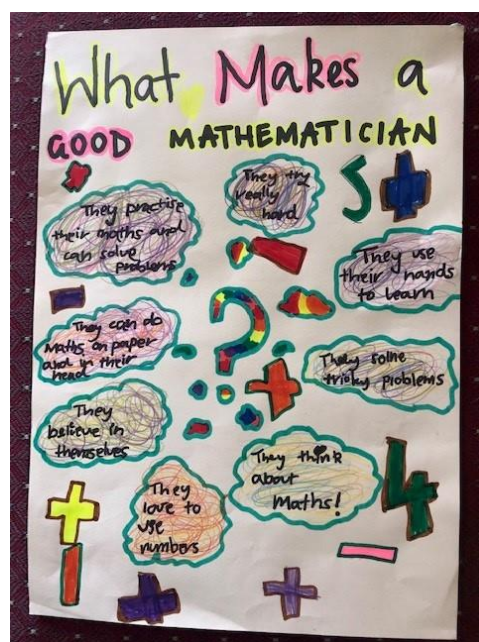 What Makes a
GOOD MATHEMATICIAN
They try
really
hard
5
They practise
their maths and
can solve
problems
They use
their hands
to learn
?
They can do
maths on paper
and in their
head
They solve
tricky problems
They
believe in
themselves
They think
about
Maths!
4
They
love to
use
numbers